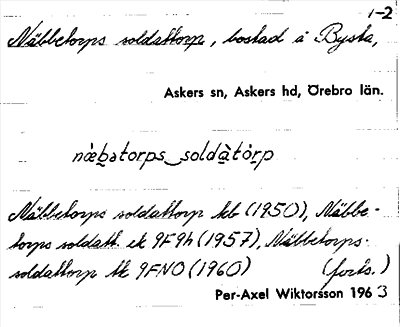 1-2
Näbbetorps soldattorp, bostad å Bysta,
Askers sn, Askers hd, Örebro län.
næ̀b̲ətorps‿soldà̲tòr̲p
Näbbetorps soldattorp kb (1950), Näbbe-
torps soldatt. ek 9F9h (1957), Näbbetorps
soldattorp tk 9FNO (1960) (forts.)
Per-Axel Wiktorsson 1963